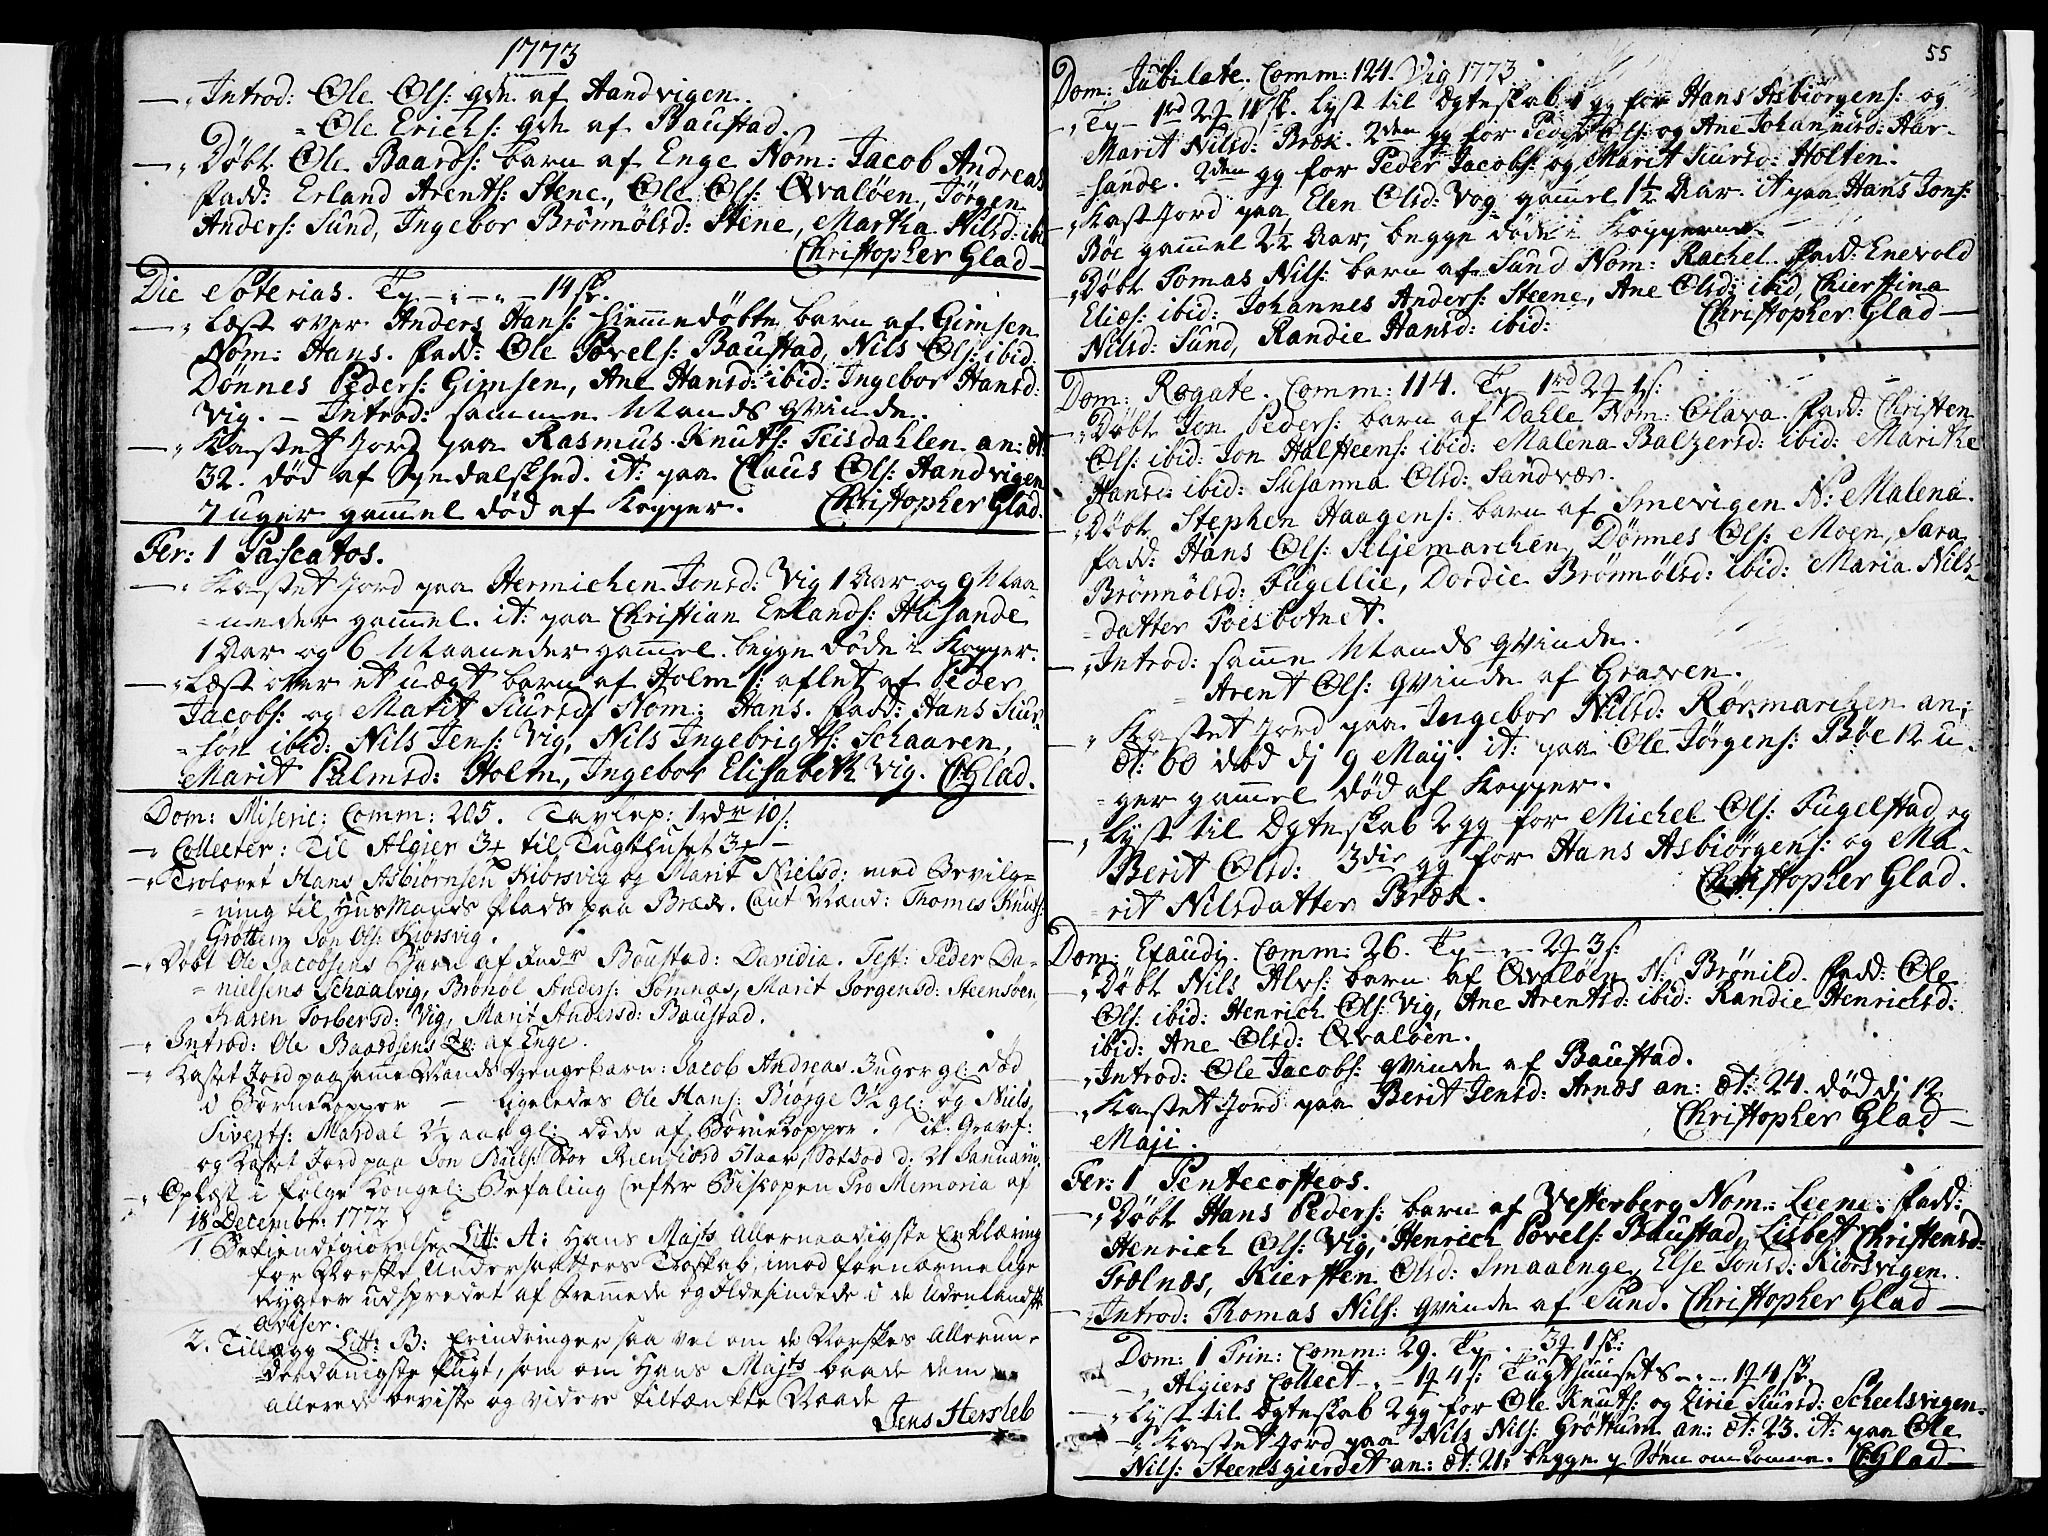 1773
Introd: Ole Ols: qde af Handvigen.
= Ole Erichs: qde af Baustad.
Døbt Ole Baards: barn af Enge Nom: Jacob Andreas
fadd: Erland Arents: Stene, Ole Ols: Qvaløen, Jörgen
Anders: Sund, Ingebor Brönnölsd: Stene, Martha Nilsd: ibid
Christopher Glad
Die Soterias. Tp - - - 14 sk.
Læst over Anders Hans: hjemmedøbte barn af Gimsen
Nom: Hans. fadd: Ole Povels: Baustad, Nils Ols: ibid.
Dönnes Peders: Gimsen, Ane Hansd: ibid: Ingebor Hansd:
Vig. - Introd: samme Mands qvinde.
Kastet Jord paa Rasmus Knuts: Feisdahlen an: æt:
32. död af Spedalskhed. it: paa Claus Ols: Handvigen
7 uger gammel död af Kopper. Christopher Glad.
Fer: 1 Pascatos.
Kastet Jord paa Hermichen Jonsd: Vig 1 Aar og 9 Maa-
=neder gammel. it: paa Christian Erlands: Husande
1 Aar og 6 Maaneder gammel. begge döde i Kopper.
Læst over et uægt barn af Holm: aflet af Peder
Jacobs: og Marit Siursd: Nom: Hans. fadd: Hans Siur-
=sön ibid: Nils Jens: Vig, Nils Ingebrigts: Schaaren,
Marit Palmsd: Holm, Ingebor Elisabeth Vig. C:Glad.
Dom: Miseric: Comm: 205. Tavlep: 1 rdr 10 s:
Collecter: Til Algier 3 til Tugthuset 3
Trolovet Hans Asbiörnsen Kiörsvig og Marit Nielsd: med Bevilg-
=ning til Husmands Plads paa Bræk. Caut Mænd: Thomes Knuds:
Grøttem Jon Ols: Kiörsvig.
Døbt Ole Jacobsens Barn af Indr Baustad: Davidia. Test: Peder Da-
=nielsens Schaalvig, Brönöl Anders: Sömnæs, Marit Jörgensd: Steensöen
Karen Torbersd: Vig, Marit Andersd: Baustad.
Introd: Ole Baardsens Qv: af Enge.
Kastet Jord paa samme Mands Drengebarn: Jacob Andreas. 3 uger gl: död
i Børnekopper - ligeledes Ole Hans: Biörge 3½ gl: og Niels
Siverts: Masdal 2½ aar gl: döde af Børnekopper. it: Gravf:
og Kastet Jord paa Jon Stor Reensiord 51 aar, Sotdöd d: 21 Januarii.
Oplæst i følge Kongel: Befaling (efter Biskopen Pro Memoria af
18 Decembr: 1772)
1. Bekiendtgiørelse Litt: A: Hans Majts Allernaadigste Erklæring
for Norske Undersaatters Troskab, imod fornærmelige
Rygter udspredet af Fremmede og Ildesindede i de Udenlandske
Aviser.
2. Tillæg Litt: B: Erindringer saa vel om de Norskes Allerun-
=derdanigste Pligt, som om Hans Majts baade dem
allerede beviste og videre tiltænkte Naade
Jens Hersleb
55
Dom: Jubilate. Comm: 124. Vig 1773
Tp 1rd 2 11 sk. lyst til Ægteskab 1 gg for Hans Asbiörgens: og
Marit Nilsd: Bræk. 2den gg for Peder Ols: og Ane Johannisd: Aar-
=sande. 2den gg for Peder Jacobs: og Marit Siursd: Holten.
Kast Jord paa Elen Olsd: Vog gammel 1½ Aar it paa Hans Jons:
Böe gammel 2½ Aar, begge döde i Kopperne.
Døbt Tomas Nils: barn af Sund Nom: Rachel. fadd: Enevold
Elies: ibid: Johannes Anders: Steene, Ane Olsd: ibid, Chierstina
Nilsd: Sund, Randie Hansd: ibid: Christopher Glad
Dom: Rogate. Comm: 114. Tp 1rd 2 1 s:
Døbt Jon Peders: barn af Dahle Nom: Olava. fadd: Christen
Ols: ibid: Jon Halsteens: ibid: Malena Balzersd: ibid: Marithe
Hansd: ibid: Susanna Olsd: Sandvær.
Døbt Stephen Haagens: barn af Smevigen N: Malena.
fadd: Hans Ols: Seljemarchen, Dönnes Ols: Moen, Sara
Brönnölsd: Fugellie, Dordie Brönnölsd: ibid: Maria Nils-
=datter Poesbotnet.
Introd: samme Mands qvinde.
= Arent Ols: qvinde af Graven.
Kastet Jord paa Ingebor Nilsd: Rørmarchen an:
æt: 60 död dj 9 Maij. it: paa Ole Jörgens: Böe 12 u-
=ger gammel död af Kopper.
Lyst til Ægteskab 2 gg for Michel Ols: Fugelstad og
Berit Olsd: 3die gg for Hans Asbiörgens: og Ma-
=rit Nilsdatter Bræk. Christopher Glad.
Dom: Exaudi. Comm: 26. Tp - - 2 3 s:
Døbt Nils Alvs: barn af Qvaløen N: Brönild. fadd: Ole
Ols: ibid: Henrich Ols: Vig, Ane Arentsd: ibid: Randie Henrichsd:
ibid: Ane Olsd: Qvaløen.
Introd: Ole Jacobs: qvinde af Baustad.
Kastet Jord paa Berit Jensd: Arnæs an: æt: 24. död dj 12
Maji. Christopher Glad
Fer: 1 Pentecosteos.
Døbt Hans Peders: barn af Vesterberg Nom: Leene. fadd:
Henrich Ols: Vig, Henrich Povels: Baustad, Lisbet Christensd:
Trælnæs, Kiersten Olsd: Smaaenge, Else Jonsd: Kiörsvigen.
Introd: Thomas Nils: qvinde af Sund. Christopher Glad
Dom: 1 Trin: Comm: 29. Tp - 3 1 sk:
Algiers Collect - 1 4 s: Tugthuusets - - 1 4 sk.
Lyst til Ægteskab 2 gg for Ole Knuts: og Zirie Siursd: Scheelsvigen.
Kastet Jord paa Nils Nils: Gröttum an: æt: 23. it: paa Ole
Nils: Steensgierdet an: æt: 21: begge p Söen omkomne. C:Glad